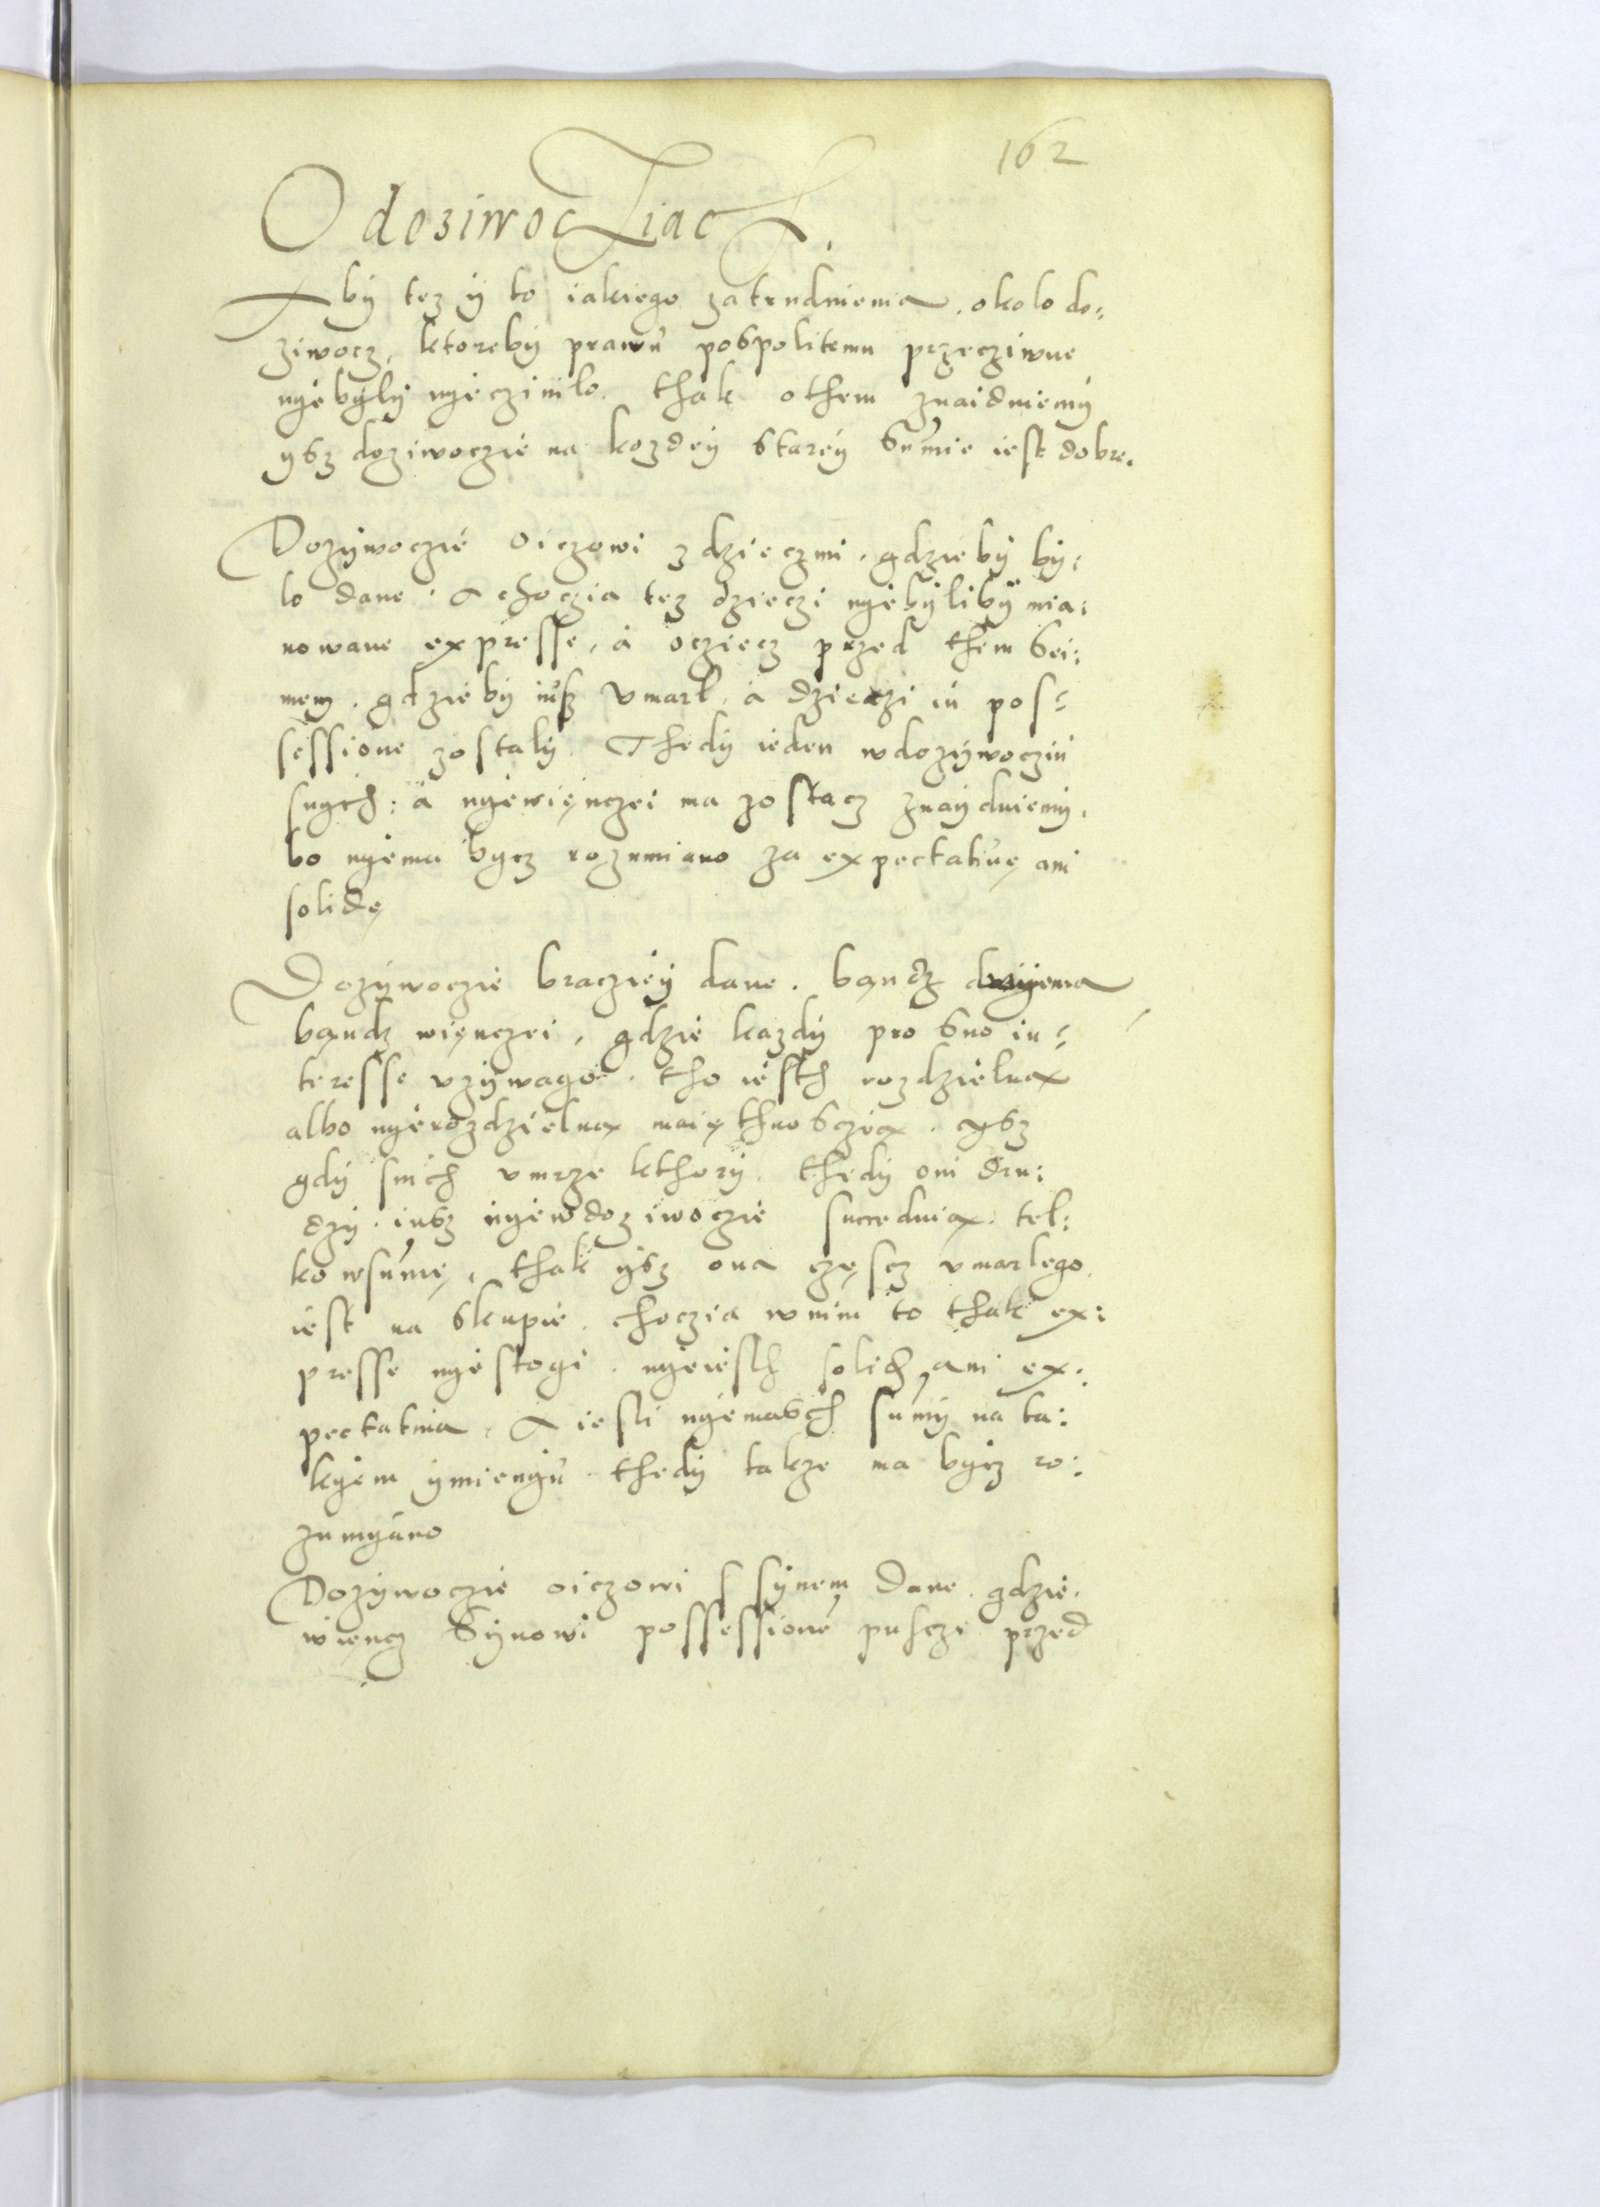 162
O dosiwocziach.
Aby tez y to iakiego zatrudnienia. okolo do:
ziwocz, ktoreby prawu pospolitemu przecziwne
nyebyly nyeczinilo. thak othem znaidniemy
ysz doziwoczie na kozdey starey sumie iest dobre.
Dozywoczie oiczowi z dzieczmi. gdzieby by:
lo dane. A choczia tez dzieczi nyebyliby mia:
nowane expresse, a ocziecz przed them sei:
mem. gdzieby iusz umarl, a dzieczi in pos:
sessione zostaly. Thedy ieden wdozywocziu
snych: a nyewięnczei ma zostacz znaydniemy.
bo nyema bycz rozumiano za expectatiuę ani
solidę
Dozywoczie bracziey dane. bąndz dwyema
bąndz więnczei, gdzie kazdy pro suo in:
teresse uzywago. tho iesth rozdzielną
albo nyerozdzielną maięthnosczią. ysz
gdy snich umrze kthory. thedy oni dru:
dzy. iusz nyewdoziwoczie succeduią. tel:
ko wsumę, thak ysz ona częscz umarlego
iest na skupie. choczia wnim to thak ex:
presse nyestogi. nyeiesth solid, ani ex:
pectatiua. A iesli nyemasch sumy na ta:
kyem ymienyu. thedy takze ma bycz ro:
zumyano
Dozywoczie oiczowi s synem dane. gdzie.
więncz synowi possessione pusczi przed